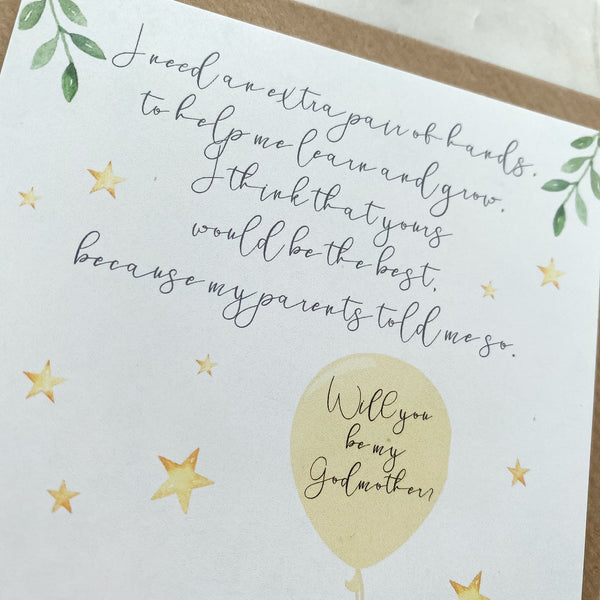 I need an extra pair of hands.
to help me learn and grow.
I think that yours
would be the best,
because my parents told me so.
Will you
be my
Godmother?